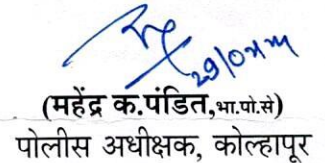 (महेंद्र क.पंडित,भा.पो.से)
पोलीस अधीक्षक, कोल्हापूर